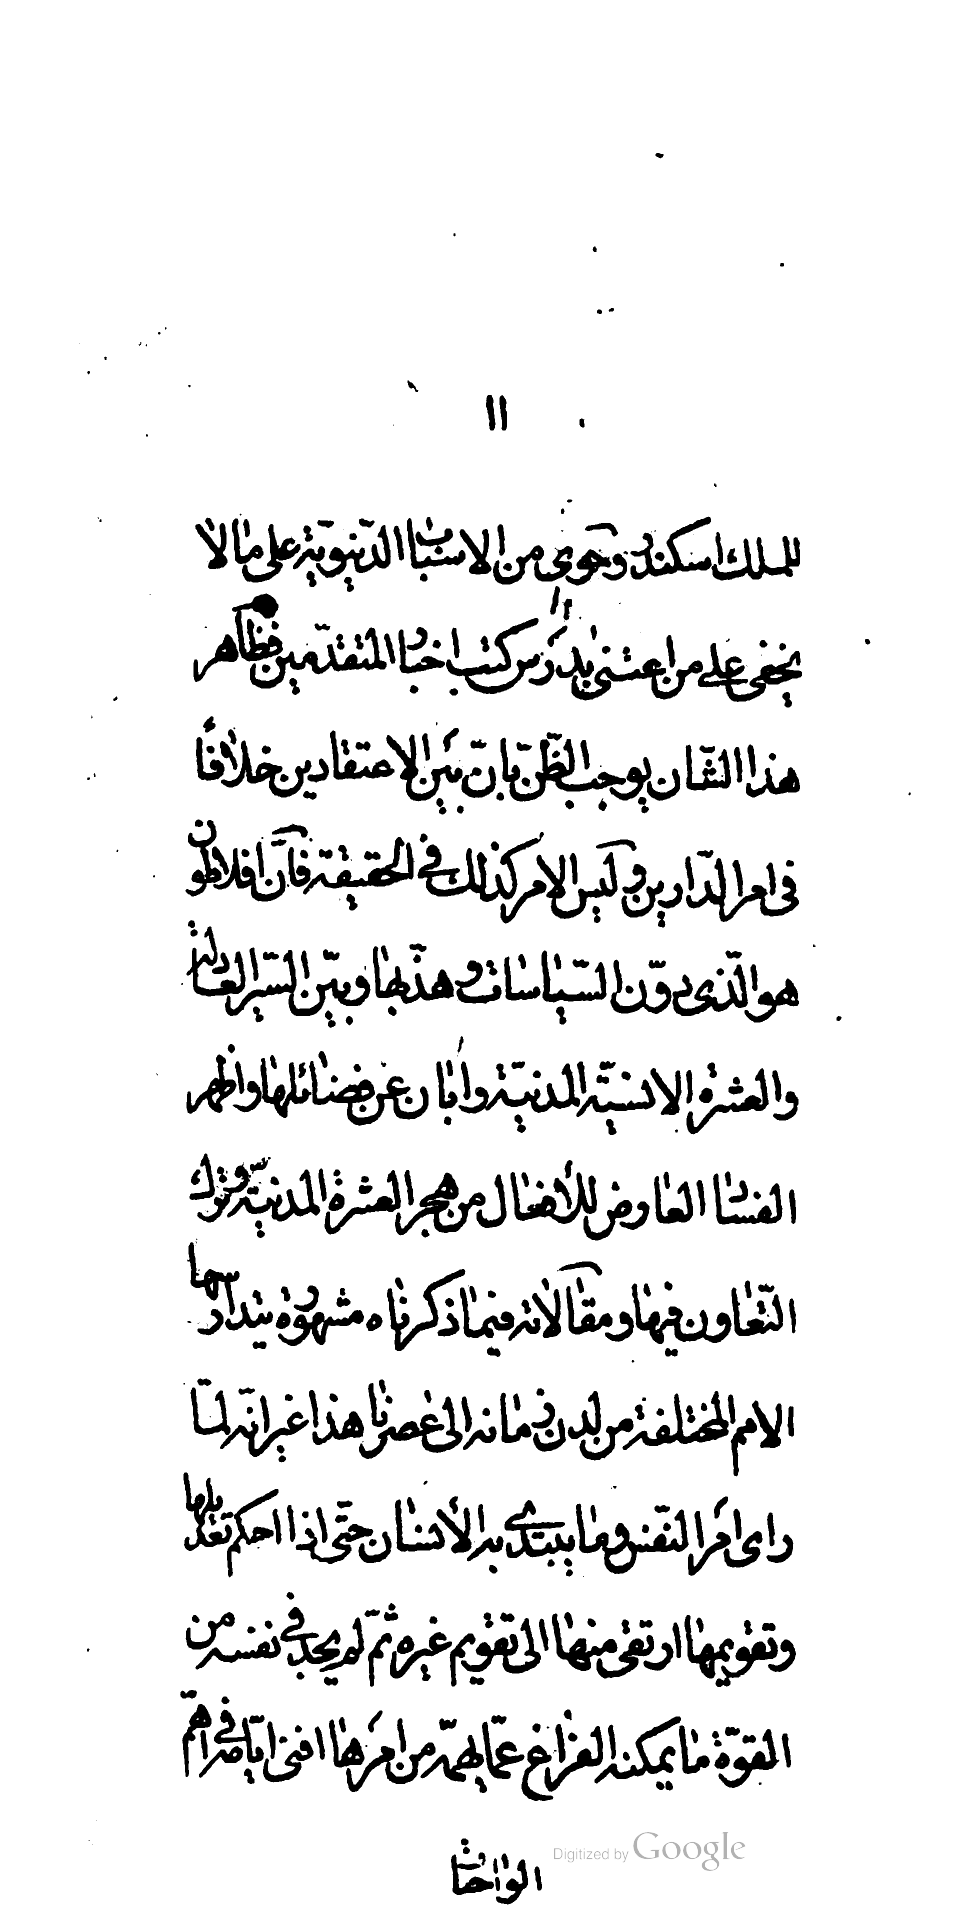 ١١
للملك اسكندر وحوى من الاسباب الدنيوية على ما لا
يخفى على من اعتنى بدرس كتب اخبار المتقدمين فظاهر
هذا الشان يوجب الظن بان بين الاعتقادين خلافًا
فى امر الدارين وليس الامر كذلك فى الحقيقة فان افلاطون
هو الذى دون السياسات وهذبها وبين السير العادلة
والعشرة الانسية المدنية وابان عن فضائلها واظهر
الفساد العارض للافعال من هجر العشرة المدنية وترك
التعاون فيها ومقالاته فيما ذكرناه مشهورة يتدارسها
الامم المختلفة من لدن زمانه الى عصرنا هذا غير انه لما
راى امر النفس وما يبتدى به الانسان حتى اذا احكم تعديلها
وتقويمها ارتقى منها الى تقويم غيره ثم لم يجد فى نفسه من
القوة ما يمكنه الفراغ عما يهمه من امرها افنى ايامه فى اهم
الواجبات
Digitized by Google